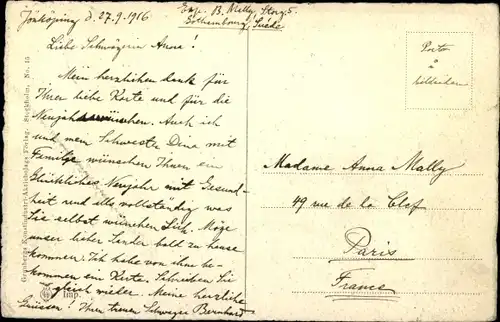 Jönköping d. 27.9.1916
Exp. B. Mally, Storg. 5.
Gothembourg, Suède
Liebe Schwägerin Anna!
Mein herzlichen dank für
Ihrer liebe Karte und für die
Neujahrswünschen. Auch ich
und mein Schwester Dina mit
Familie wünschen Ihnen ein
Glückliches Neujahr mit Gesund-
heit und alls vollständig was
Sie selbst wünchen Sich. Möge
unser lieber Sander bald zu hause
kommen. Ich habe von ihne be-
kommen ein Karte. Schreiben Sie
gleich wieder. Meine herzliche
Grüssen! Ihr treuer Schwager Bernhard
Porto
à
Madame Anna Mally
49 rue de la Clef
Paris
France
Granbergs Konstindustri-Aktiebolags Förlag. Stockholm. No. 45
Imp.